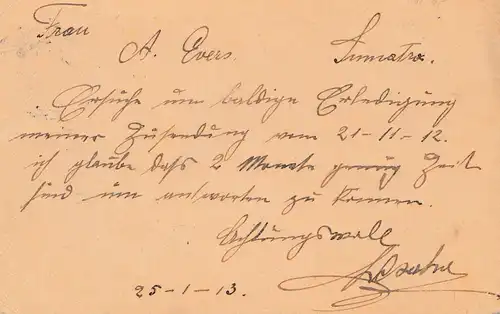 Frau
A. Evers. Sumatra.
Ersuche um baldige Erledigung
meiner Zusendung vom 21-11-12.
ich glaube dass 2 Monate genug Zeit
sind um antworten zu können.
Achtungsvoll
25-1-13.